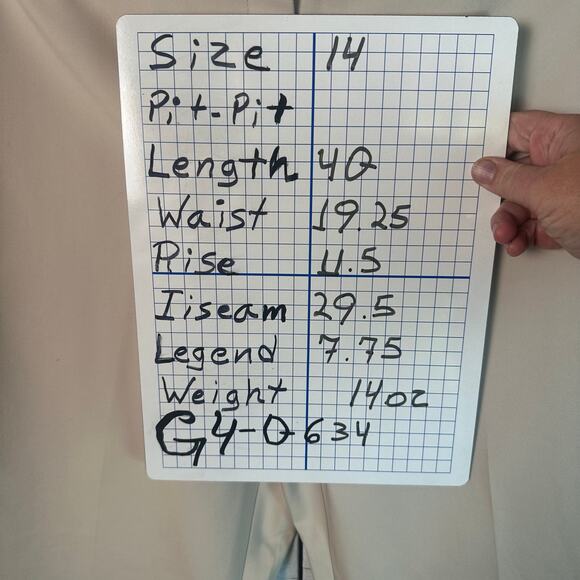 Size 14
Pit-Pit
Length 40
Waist 19.25
Rise 11.5
Iiseam 29.5
Legend 7.75
Weight 14oz
G4-0634